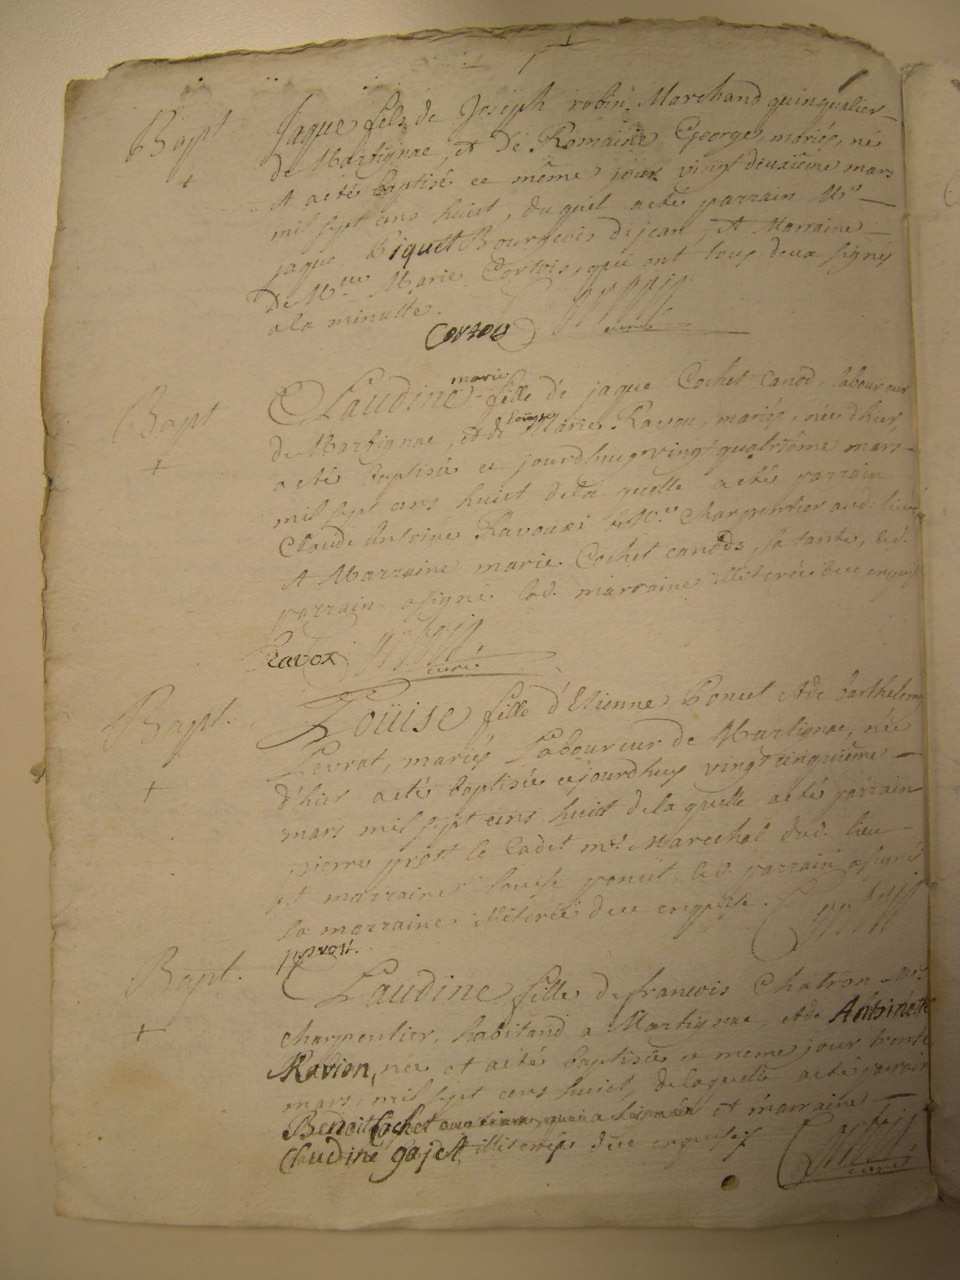 Bapt
Jaque fils de Joseph robin Marchand quinqualier
de Martignac, et de Romaine George mariés, né
A acté baptisé ce même jour vingt deuxième mars
mil sept cens huict, duquel acté parrain Mr
jaque Piquet Bourgeois dijcan, et Marraine
De Mlle Marie Cortois, qui ont tous deux signés
a la minutte.
Cortois curé
Bapt
marie
Claudine fille de jaque Cochet Canod, laboureur
de Martignac, et de Marie Ravou, mariés, née d'hier
acté baptisée ce jourdhuy vingt quatrième mars
mil sept cens huict de la quelle acté parrain
Claude Antoine Ravoux Me Charpentier aud. lieu
et Marraine marie Cochet canods, sa tante, led.
parrain a signé lad. marraine illiterée de ce enquise
Ravox curé
Bapt.
Loüise fille d'Etienne Poncet et de barthelemy
Levrat, mariés Laboureur de Martignac, née
d'hier acté baptisée cejourdhuy vingt cinquième
mars mil sept cens huict de la quelle acté parrain
pierre prost le Cadet me Marechal dud. lieu
et marraine Louise poncet, led. parrain a signé
la marraine illiterée de ce enquise.
provost.
Bapt.
Claudine fille de francois Chatron Me
charpentier, habitand a Martignac, et de Anthinette
Ravion, née et acté baptisée ce meme jour trente
mars, mil sept cens huict, de laquelle acté parrain
Benoit Cochet et marraine
Claudine gajet illiterés de ce enquis
curé